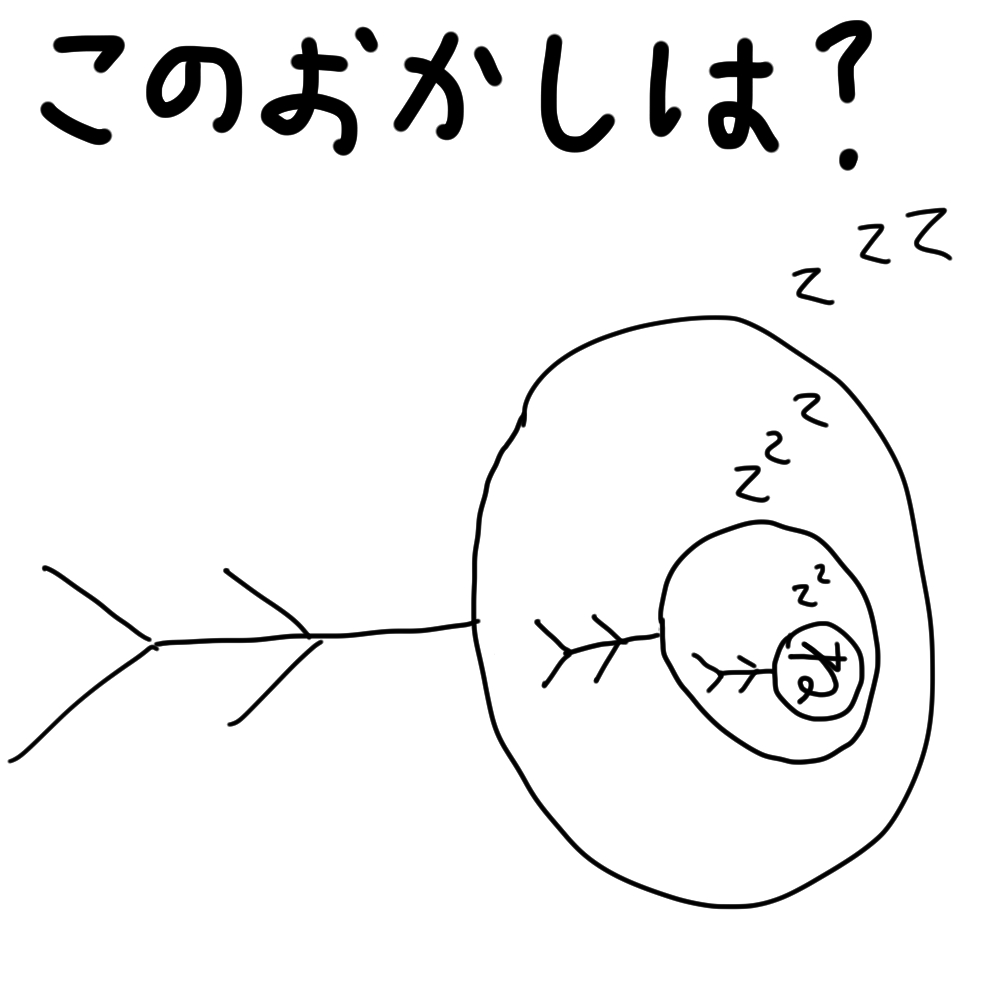 このおかしは?
z z z
z z z
z z
ね